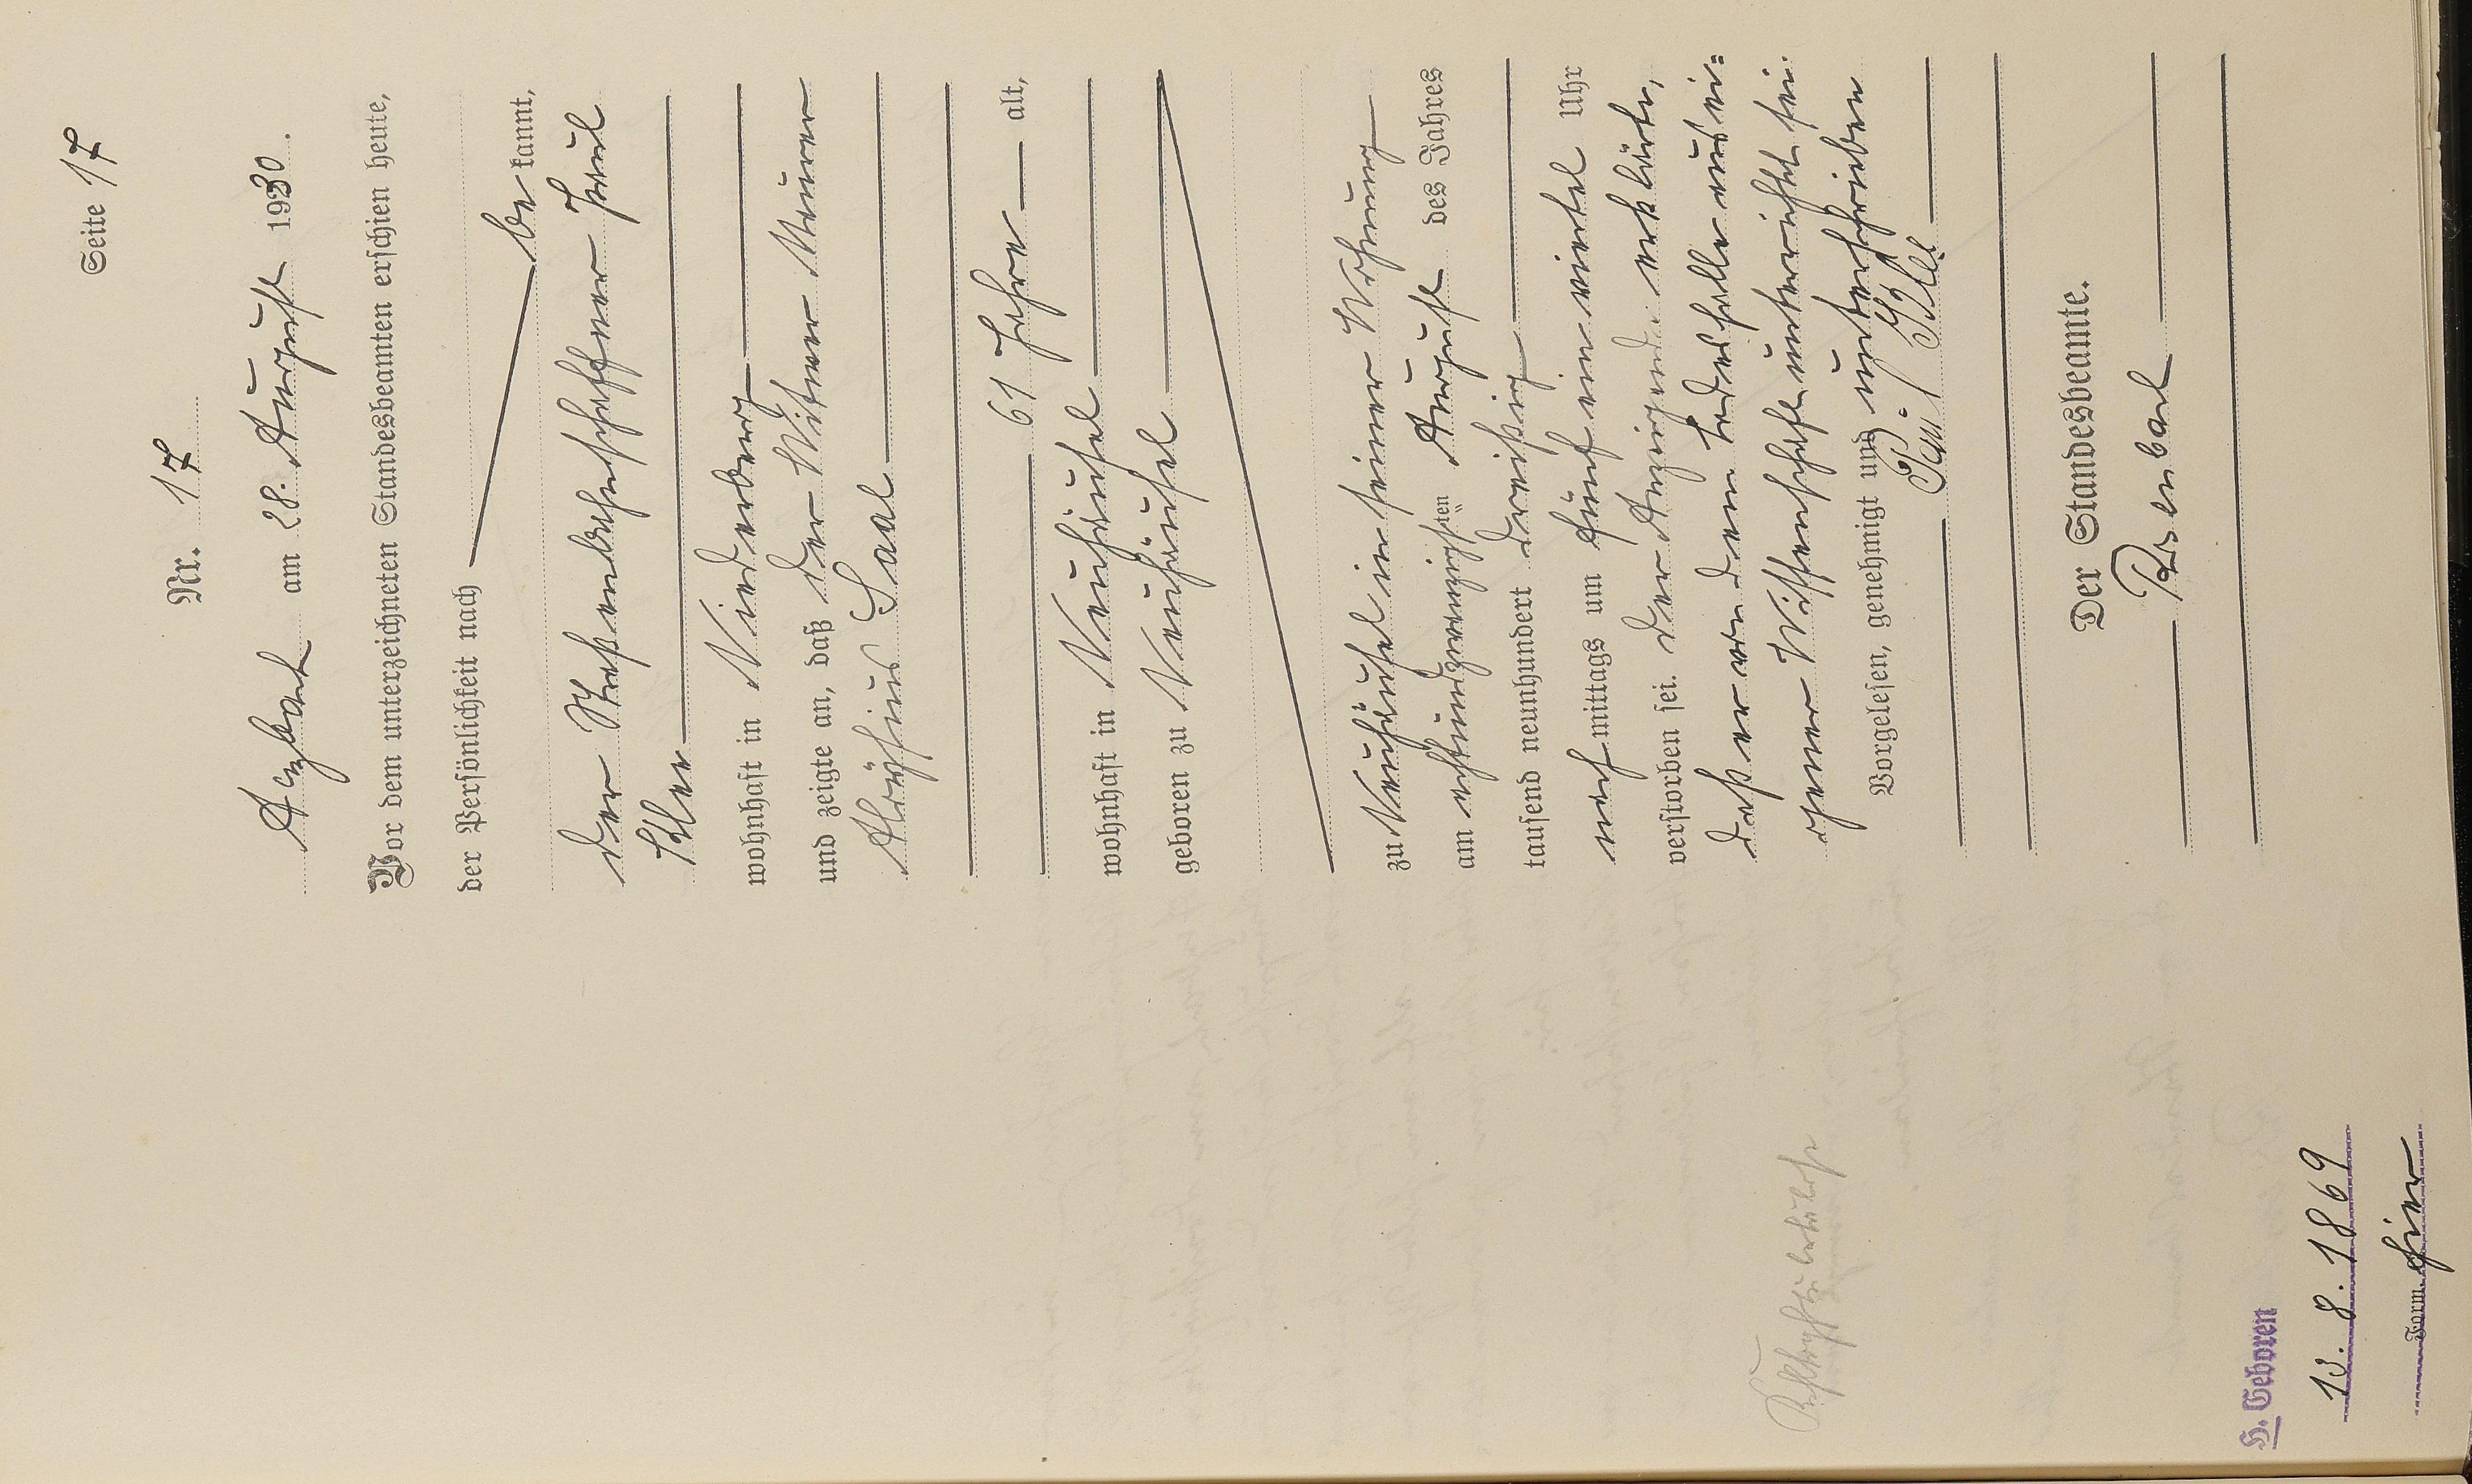 Seite 17
Nr. 17
Arzbach am 28. August 1930.
Vor dem unterzeichneten Standesbeamten erschien heute,
der Persönlichkeit nach be kannt,
der Straßenbahnschaffner Paul
wohnhaft in Niederberg
und zeigte an, daß der Witwer Maurer
Aloysius Saal
61 Jahre alt,
wohnhaft in Neuhäusel
geboren zu Neuhäusel
zu Neuhäusel in seiner Wohnung
am achtundzwanzigsten August des Jahres
tausend neunhundert dreißig
nachmittags um fünf ein viertel Uhr
verstorben sei. Der Anzeigende erklärte,
daß er von dem Todesfalle aus ei=
gener Wissenschaft unterrichtet sei.
Vorgelesen, genehmigt und unterschrieben
Paul
Der Standesbeamte.
H. Geboren
13. 8. 1869
Form. hier